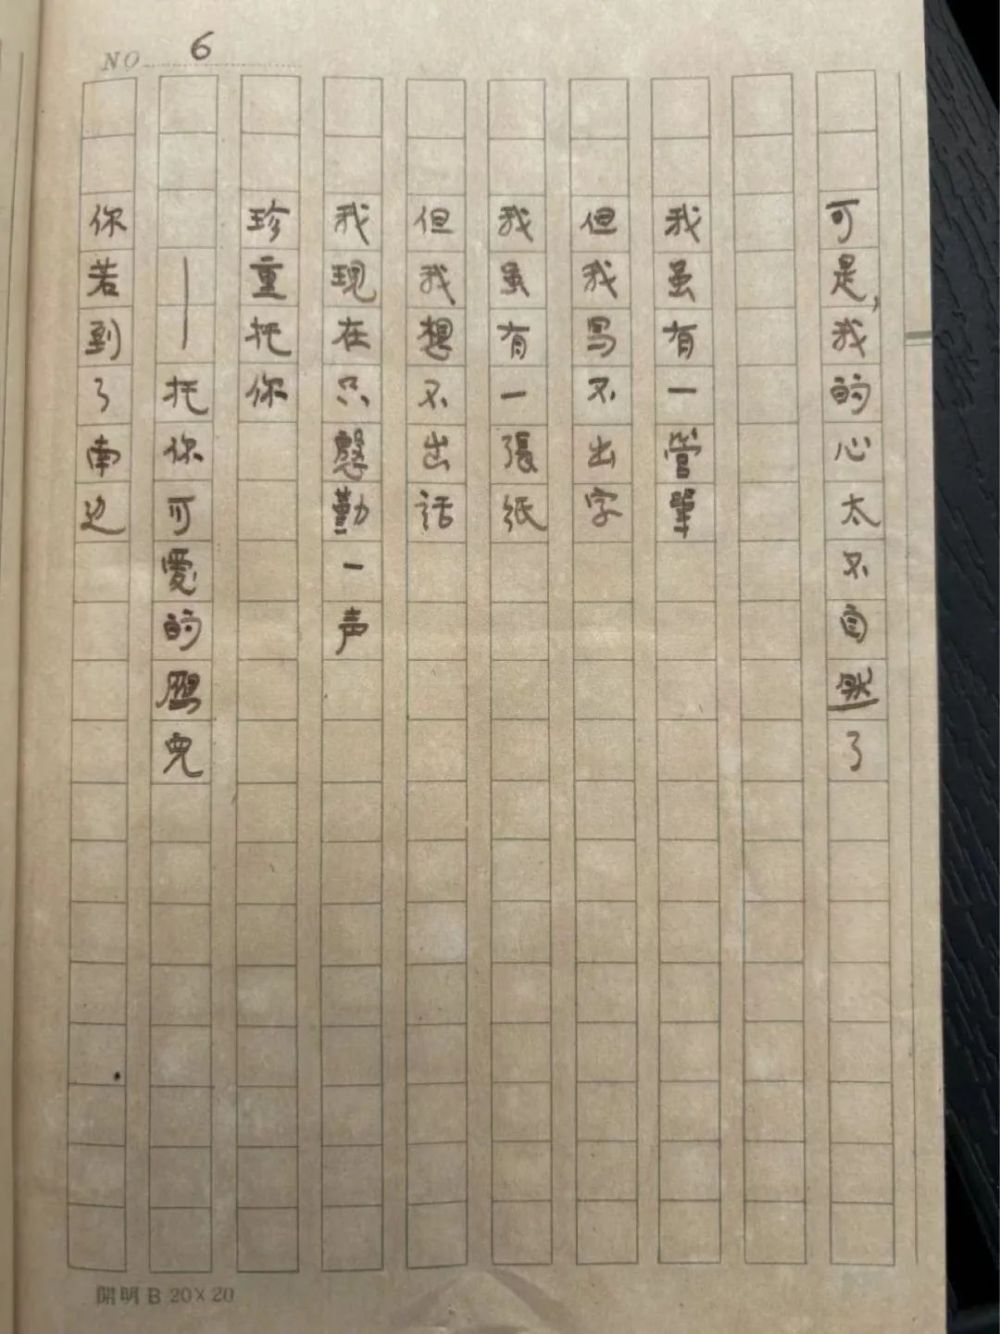 NO 6
可是，我的心太不自然了
我虽有一管筆
但我写不出字
我虽有一張紙
但我想不出話
我現在只慇勤一声
珍重托你
——托你可愛的鴈児
你若到了南边
開明B 20×20